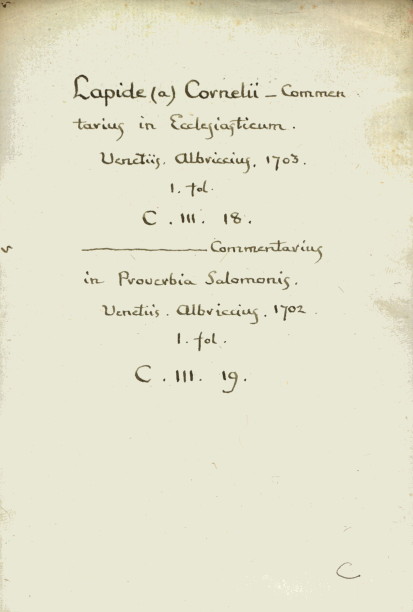 Lapide (a) Cornelii – Commen
tarius in Ecclesiasticum.
Venetiis. Albriccius, 1703.
1. fol.
C. III. 18.
———— Commentarius
in Proverbia Salomonis.
Venetiis. Albriccius, 1702.
1. fol.
C. III. 19.
C